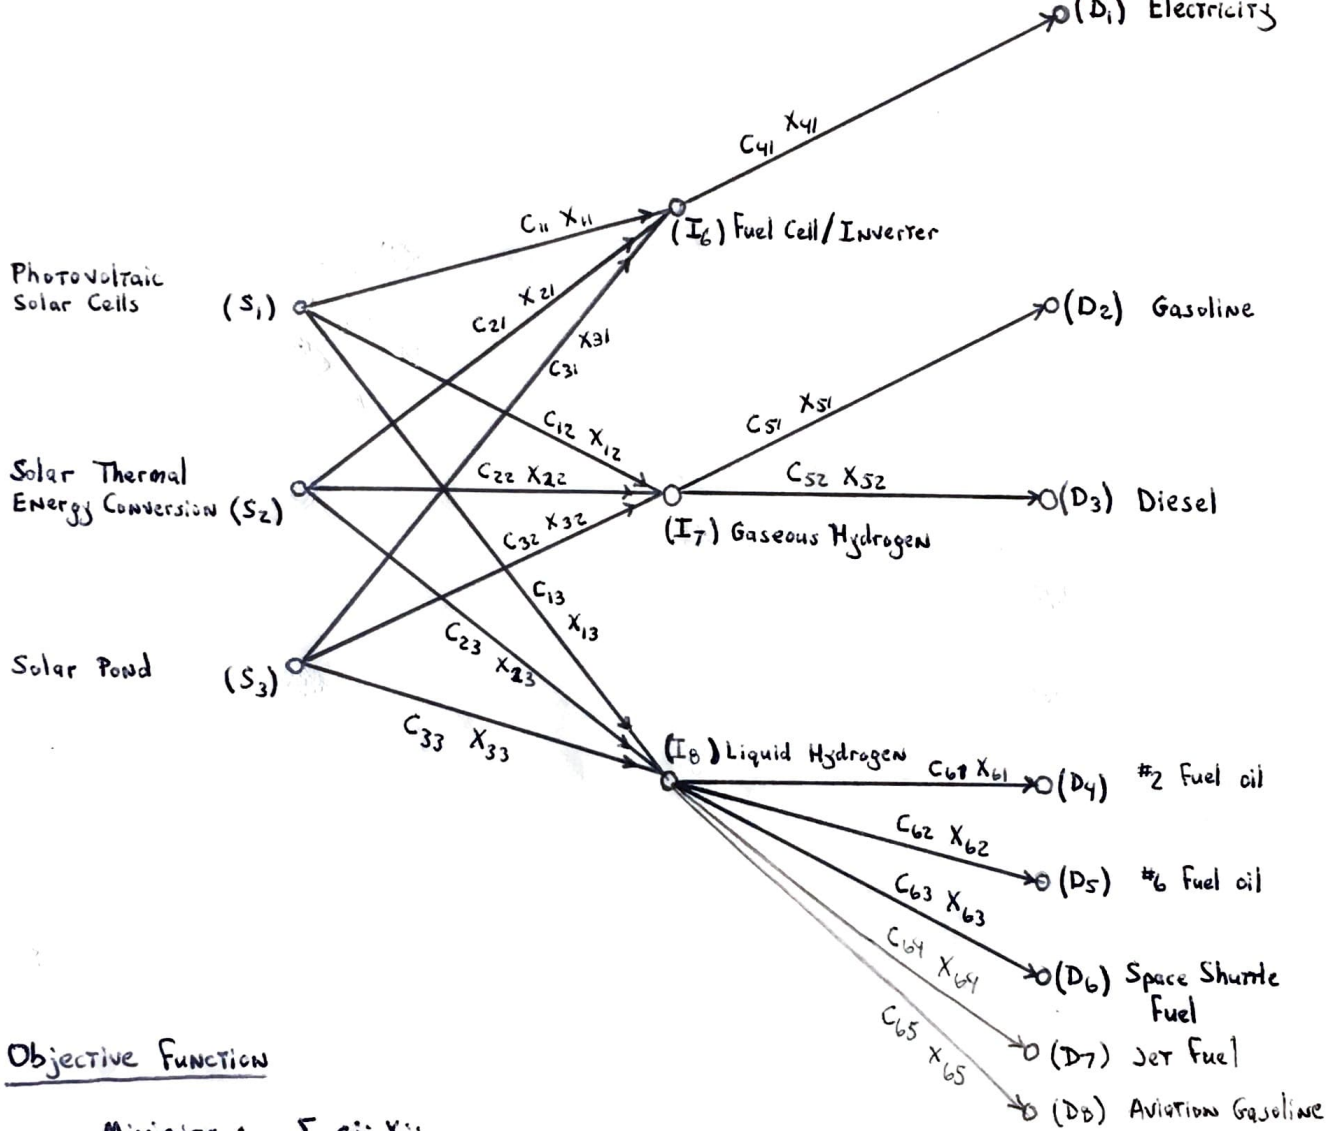 (D1) Electricity
C41 X41
C11 X11
(I6) Fuel Cell/Inverter
Photovoltaic
Solar Cells (S1)
C21 X21
C31 X31
(D2) Gasoline
C12 X12
C51 X51
Solar Thermal
Energy Conversion (S2)
C22 X22
C52 X52
(D3) Diesel
C32 X32
(I7) Gaseous Hydrogen
C13 X13
C23 X23
Solar Pond (S3)
C33 X33
(I8) Liquid Hydrogen
C61 X61
(D4) #2 Fuel oil
C62 X62
(D5) #6 Fuel oil
C63 X63
C64 X64
(D6) Space Shuttle
Fuel
C65 X65
(D7) Jet Fuel
(D8) Aviation Gasoline
Objective Function